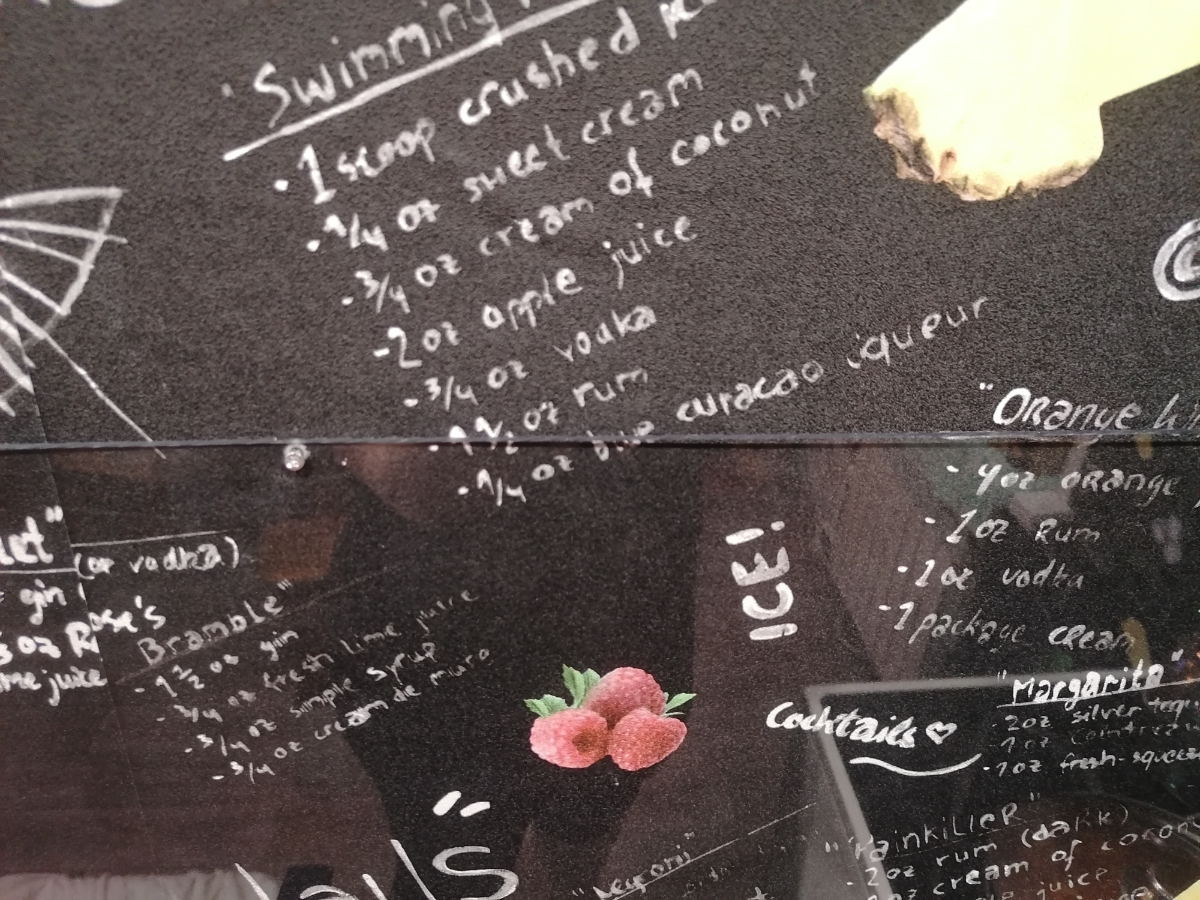 "Swimming
· 1 scoop crushed
· 1/4 oz sweet cream
· 3/4 oz cream of coconut
- 2 oz apple juice
· 3/4 oz vodka
· 1 1/2 oz rum
· 1/4 oz blue curacao liqueur
"Orange
- 4oz orange
- 1oz Rum
- 1oz vodka
- 1 package cream
let"
(or vodka)
gin
5 oz Rose's
me juice
Bramble"
- 1 1/2 oz gin
- 3/4 oz fresh lime juice
- 3/4 oz simple syrup
- 3/4 oz creamde muro
ICE!
Cocktails ♡
"Margarita"
· 2oz silver
· 1oz
· 1oz fresh-squeez
"PainkilleR"
- 2oz rum (daRk)
cream of
juice